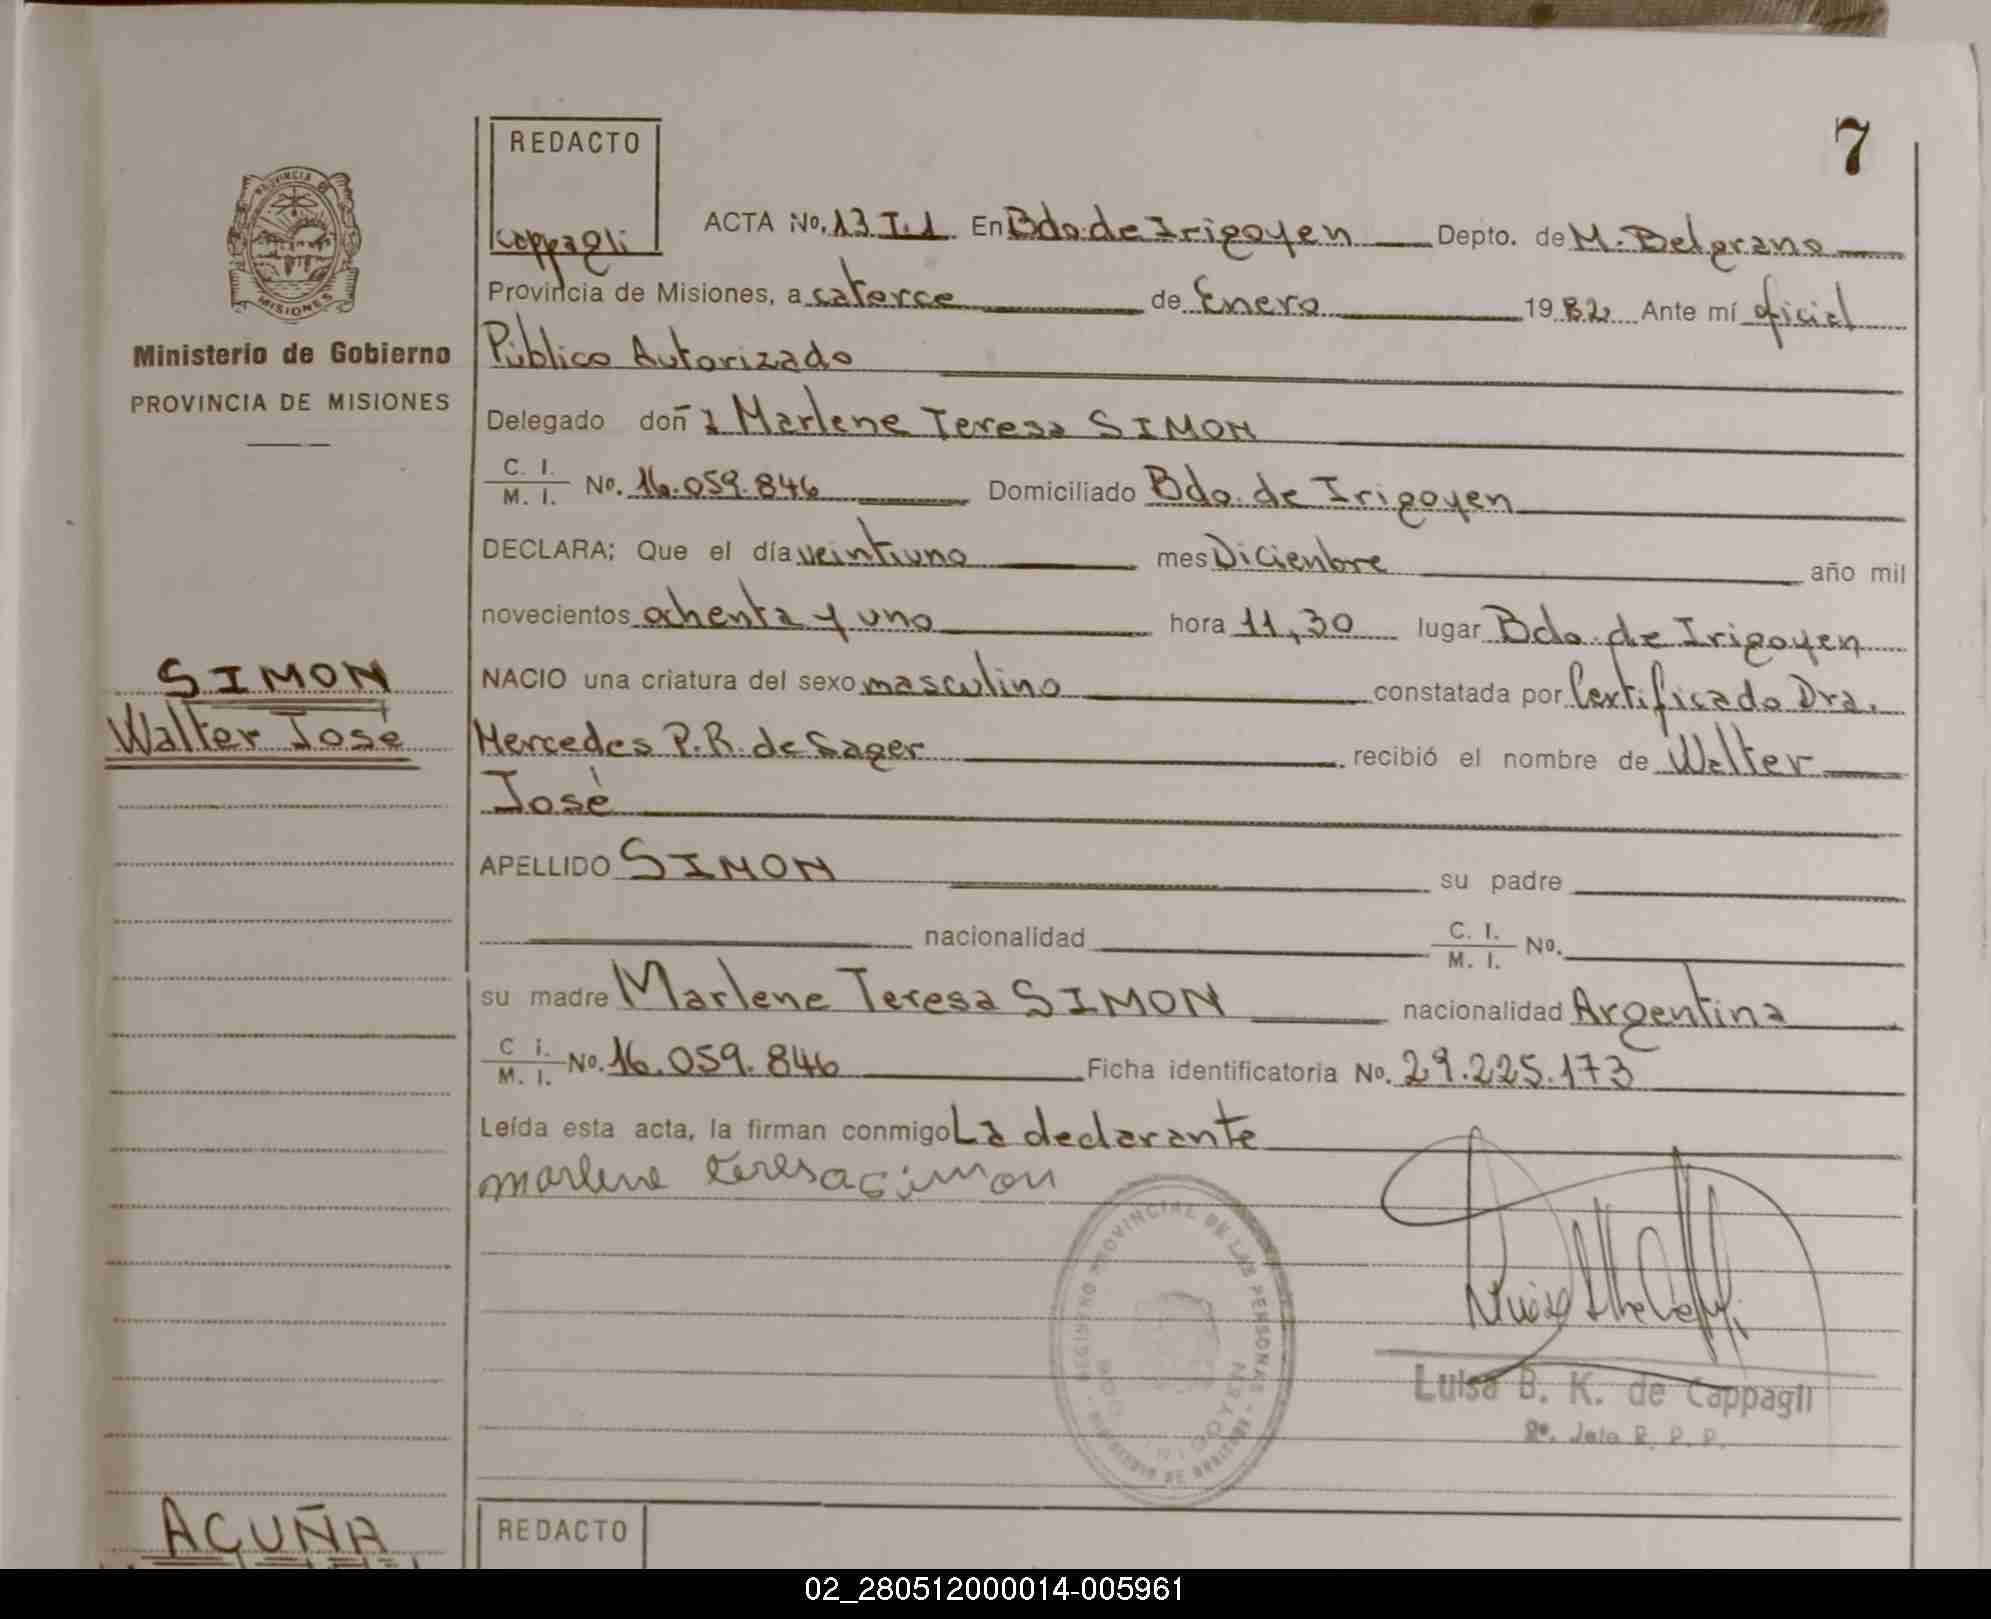 7
REDACTO
Cappagli
ACTA No. 13 T.1 En Bdo. de Irigoyen Depto. de M. Belgrano
Provincia de Misiones, a catorce de Enero 1982 Ante mí oficial
Público Autorizado
Delegado doña Marlene Teresa SIMON
C. I. / M. I. No. 16.059.846 Domiciliado Bdo. de Irigoyen
DECLARA: Que el día veintiuno mes Diciembre año mil
novecientos ochenta y uno hora 11,30 lugar Bdo. de Irigoyen
NACIO una criatura del sexo masculino constatada por Certificado Dra.
Mercedes P.R. de Sager recibió el nombre de Walter
José
APELLIDO SIMON su padre
nacionalidad C. I. / M. I. No.
su madre Marlene Teresa SIMON nacionalidad Argentina
C i. / M. I. No. 16.059.846 Ficha identificatoria No. 29.225.173
Leída esta acta, la firman conmigo La declarante
marlene teresa cimon
PROVINCIA
MISIONES
Ministerio de Gobierno
PROVINCIA DE MISIONES
SIMON
Walter José
REGISTRO PROVINCIAL DE LAS PERSONAS
IRIGOYEN
Luisa B. K. de Cappagli
ACUÑA
REDACTO
02_280512000014-005961